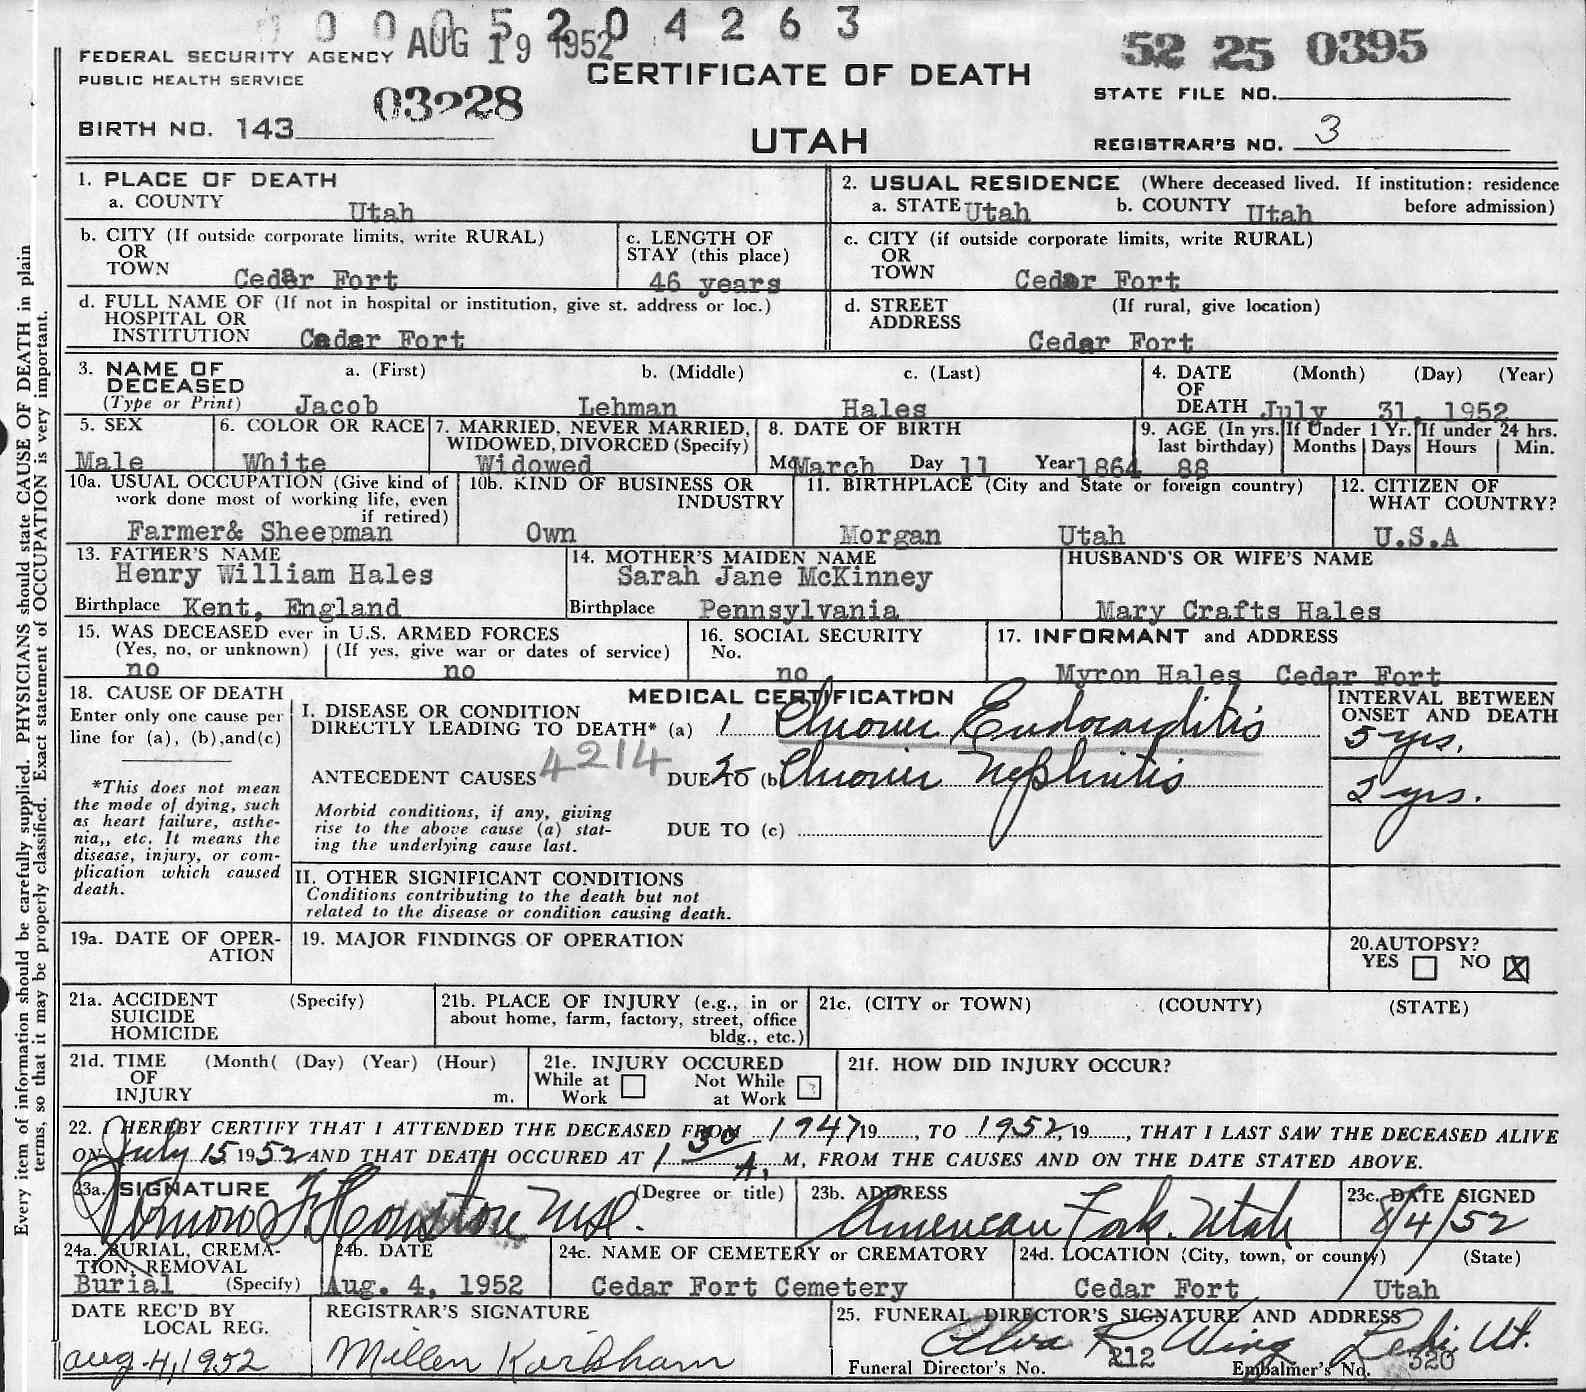 0 0 0 5 2 0 4 2 6 3
AUG 19 1952
52 25 0395
FEDERAL SECURITY AGENCY
PUBLIC HEALTH SERVICE
CERTIFICATE OF DEATH
STATE FILE NO.
03228
BIRTH NO. 143
UTAH
REGISTRAR'S NO. 3
1. PLACE OF DEATH
a. COUNTY Utah
2. USUAL RESIDENCE (Where deceased lived. If institution: residence before admission)
a. STATE Utah b. COUNTY Utah
b. CITY (If outside corporate limits, write RURAL)
OR
TOWN Cedar Fort
c. LENGTH OF
STAY (this place)
46 years
c. CITY (if outside corporate limits, write RURAL)
OR
TOWN Cedar Fort
d. FULL NAME OF (If not in hospital or institution, give st. address or loc.)
HOSPITAL OR
INSTITUTION Cedar Fort
d. STREET (If rural, give location)
ADDRESS
Cedar Fort
3. NAME OF
DECEASED
(Type or Print)
a. (First) b. (Middle) c. (Last)
Jacob Lehman Hales
4. DATE (Month) (Day) (Year)
OF
DEATH July 31, 1952
5. SEX
Male
6. COLOR OR RACE
White
7. MARRIED, NEVER MARRIED,
WIDOWED, DIVORCED (Specify)
Widowed
8. DATE OF BIRTH
Mo March Day 11 Year 1864
9. AGE (In yrs.
last birthday)
88
If Under 1 Yr.
Months Days
If under 24 hrs.
Hours Min.
10a. USUAL OCCUPATION (Give kind of
work done most of working life, even
if retired)
Farmer& Sheepman
10b. KIND OF BUSINESS OR
INDUSTRY
Own
11. BIRTHPLACE (City and State or foreign country)
Morgan Utah
12. CITIZEN OF
WHAT COUNTRY?
U.S.A
13. FATHER'S NAME
Henry William Hales
Birthplace Kent, England
14. MOTHER'S MAIDEN NAME
Sarah Jane McKinney
Birthplace Pennsylvania
HUSBAND'S OR WIFE'S NAME
Mary Crafts Hales
15. WAS DECEASED ever in U.S. ARMED FORCES
(Yes, no, or unknown) (If yes, give war or dates of service)
no no
16. SOCIAL SECURITY
No.
no
17. INFORMANT and ADDRESS
Myron Hales Cedar Fort
18. CAUSE OF DEATH
Enter only one cause per
line for (a), (b),and(c)
*This does not mean
the mode of dying, such
as heart failure, asthe-
nia,, etc. It means the
disease, injury, or com-
plication which caused
death.
MEDICAL CERTIFICATION
I. DISEASE OR CONDITION
DIRECTLY LEADING TO DEATH* (a) 1 Chronic Endocarditis
ANTECEDENT CAUSES 4214 DUE TO (b) 2 Chronic Nephritis
Morbid conditions, if any, giving
rise to the above cause (a) stat-
ing the underlying cause last.
DUE TO (c)
INTERVAL BETWEEN
ONSET AND DEATH
5 yrs.
2 yrs.
II. OTHER SIGNIFICANT CONDITIONS
Conditions contributing to the death but not
related to the disease or condition causing death.
19a. DATE OF OPER-
ATION
19. MAJOR FINDINGS OF OPERATION
20.AUTOPSY?
YES NO X
21a. ACCIDENT (Specify)
SUICIDE
HOMICIDE
21b. PLACE OF INJURY (e.g., in or
about home, farm, factory, street, office
bldg., etc.)
21c. (CITY or TOWN) (COUNTY) (STATE)
21d. TIME (Month( (Day) (Year) (Hour)
OF
INJURY m.
21e. INJURY OCCURED
While at Work Not While at Work
21f. HOW DID INJURY OCCUR?
22. I HEREBY CERTIFY THAT I ATTENDED THE DECEASED FROM 1947 19......, TO 1952, 19......, THAT I LAST SAW THE DECEASED ALIVE
ON July 15 1952 AND THAT DEATH OCCURED AT 1 30 A. M, FROM THE CAUSES AND ON THE DATE STATED ABOVE.
23a. SIGNATURE (Degree or title)
Houston M.D.
23b. ADDRESS
American Fork. Utah
23c. DATE SIGNED
8/4/52
24a. BURIAL, CREMA-
TION, REMOVAL
Burial (Specify)
24b. DATE
Aug. 4, 1952
24c. NAME OF CEMETERY or CREMATORY
Cedar Fort Cemetery
24d. LOCATION (City, town, or county) (State)
Cedar Fort Utah
DATE REC'D BY
LOCAL REG.
Aug. 4, 1952
REGISTRAR'S SIGNATURE
Millen Kirkham
25. FUNERAL DIRECTOR'S SIGNATURE AND ADDRESS
Elva R Wing Lehi, Ut.
Funeral Director's No. 212 Embalmer's No. 320
Every item of information should be carefully supplied. PHYSICIANS should state CAUSE OF DEATH in plain
terms, so that it may be properly classified. Exact statement of OCCUPATION is very important.